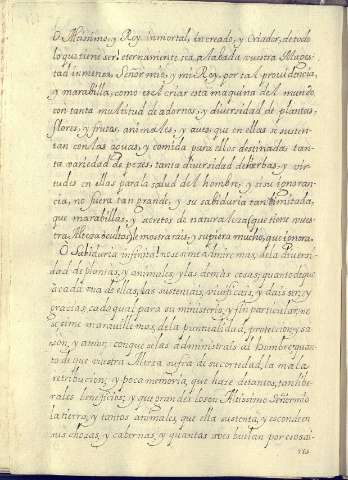 ò Altissimo, y Rey inmortal, increado, y Criador, de todo
lo que tiene ser! eternamente sea alabada vuestra Mages-
tad inmensa, Señor mio, y mi Rey, por tal providencia,
y marabilla, como es el criar esta maquina del mundo,
con tanta multitud de adornos, y diversidad de plantas,
flores, y frutos, animales, y aues, que en ellas se susten-
tan con las aguas, y comida para ellos destinada; tan-
ta variedad de pezes, tanta diversidad de hierbas, y vir-
tudes en ellas para la salud del hombre, y si su ignoran-
cia, no fuera tan grande, y su sabiduria tan limitada,
que marabillas, y secretos de naturaleza (que tiene vues-
tra Alteza ocultas) le mostrarais, y supiera mucho, que ignora.
O Sabiduria infinita! no se me admire mas, de la diversi-
dad de plantas, y animales, y las demas cosas, quanto de que
à cada una de ellas, las sustentais, vivificais, y dais ser, y
gracias, cada qual para su ministerio, y fin particular, ne
se sime maravillemos, de la puntualidad, proteccion, y sa-
son, y amor, con que se las administrais al hombre, quan-
to de que vuestra Alteza sufra de su cortedad, la mala
retribucion, y poca memoria, que haze de tantos, tan libe-
rales beneficios, y que grandes los ón Altissimo Señor mio
la tierra, y tantos animales, que ella sustenta, y esconde en
sus chozas, y cabernas, y quantas aves buelan por esos ai-
res